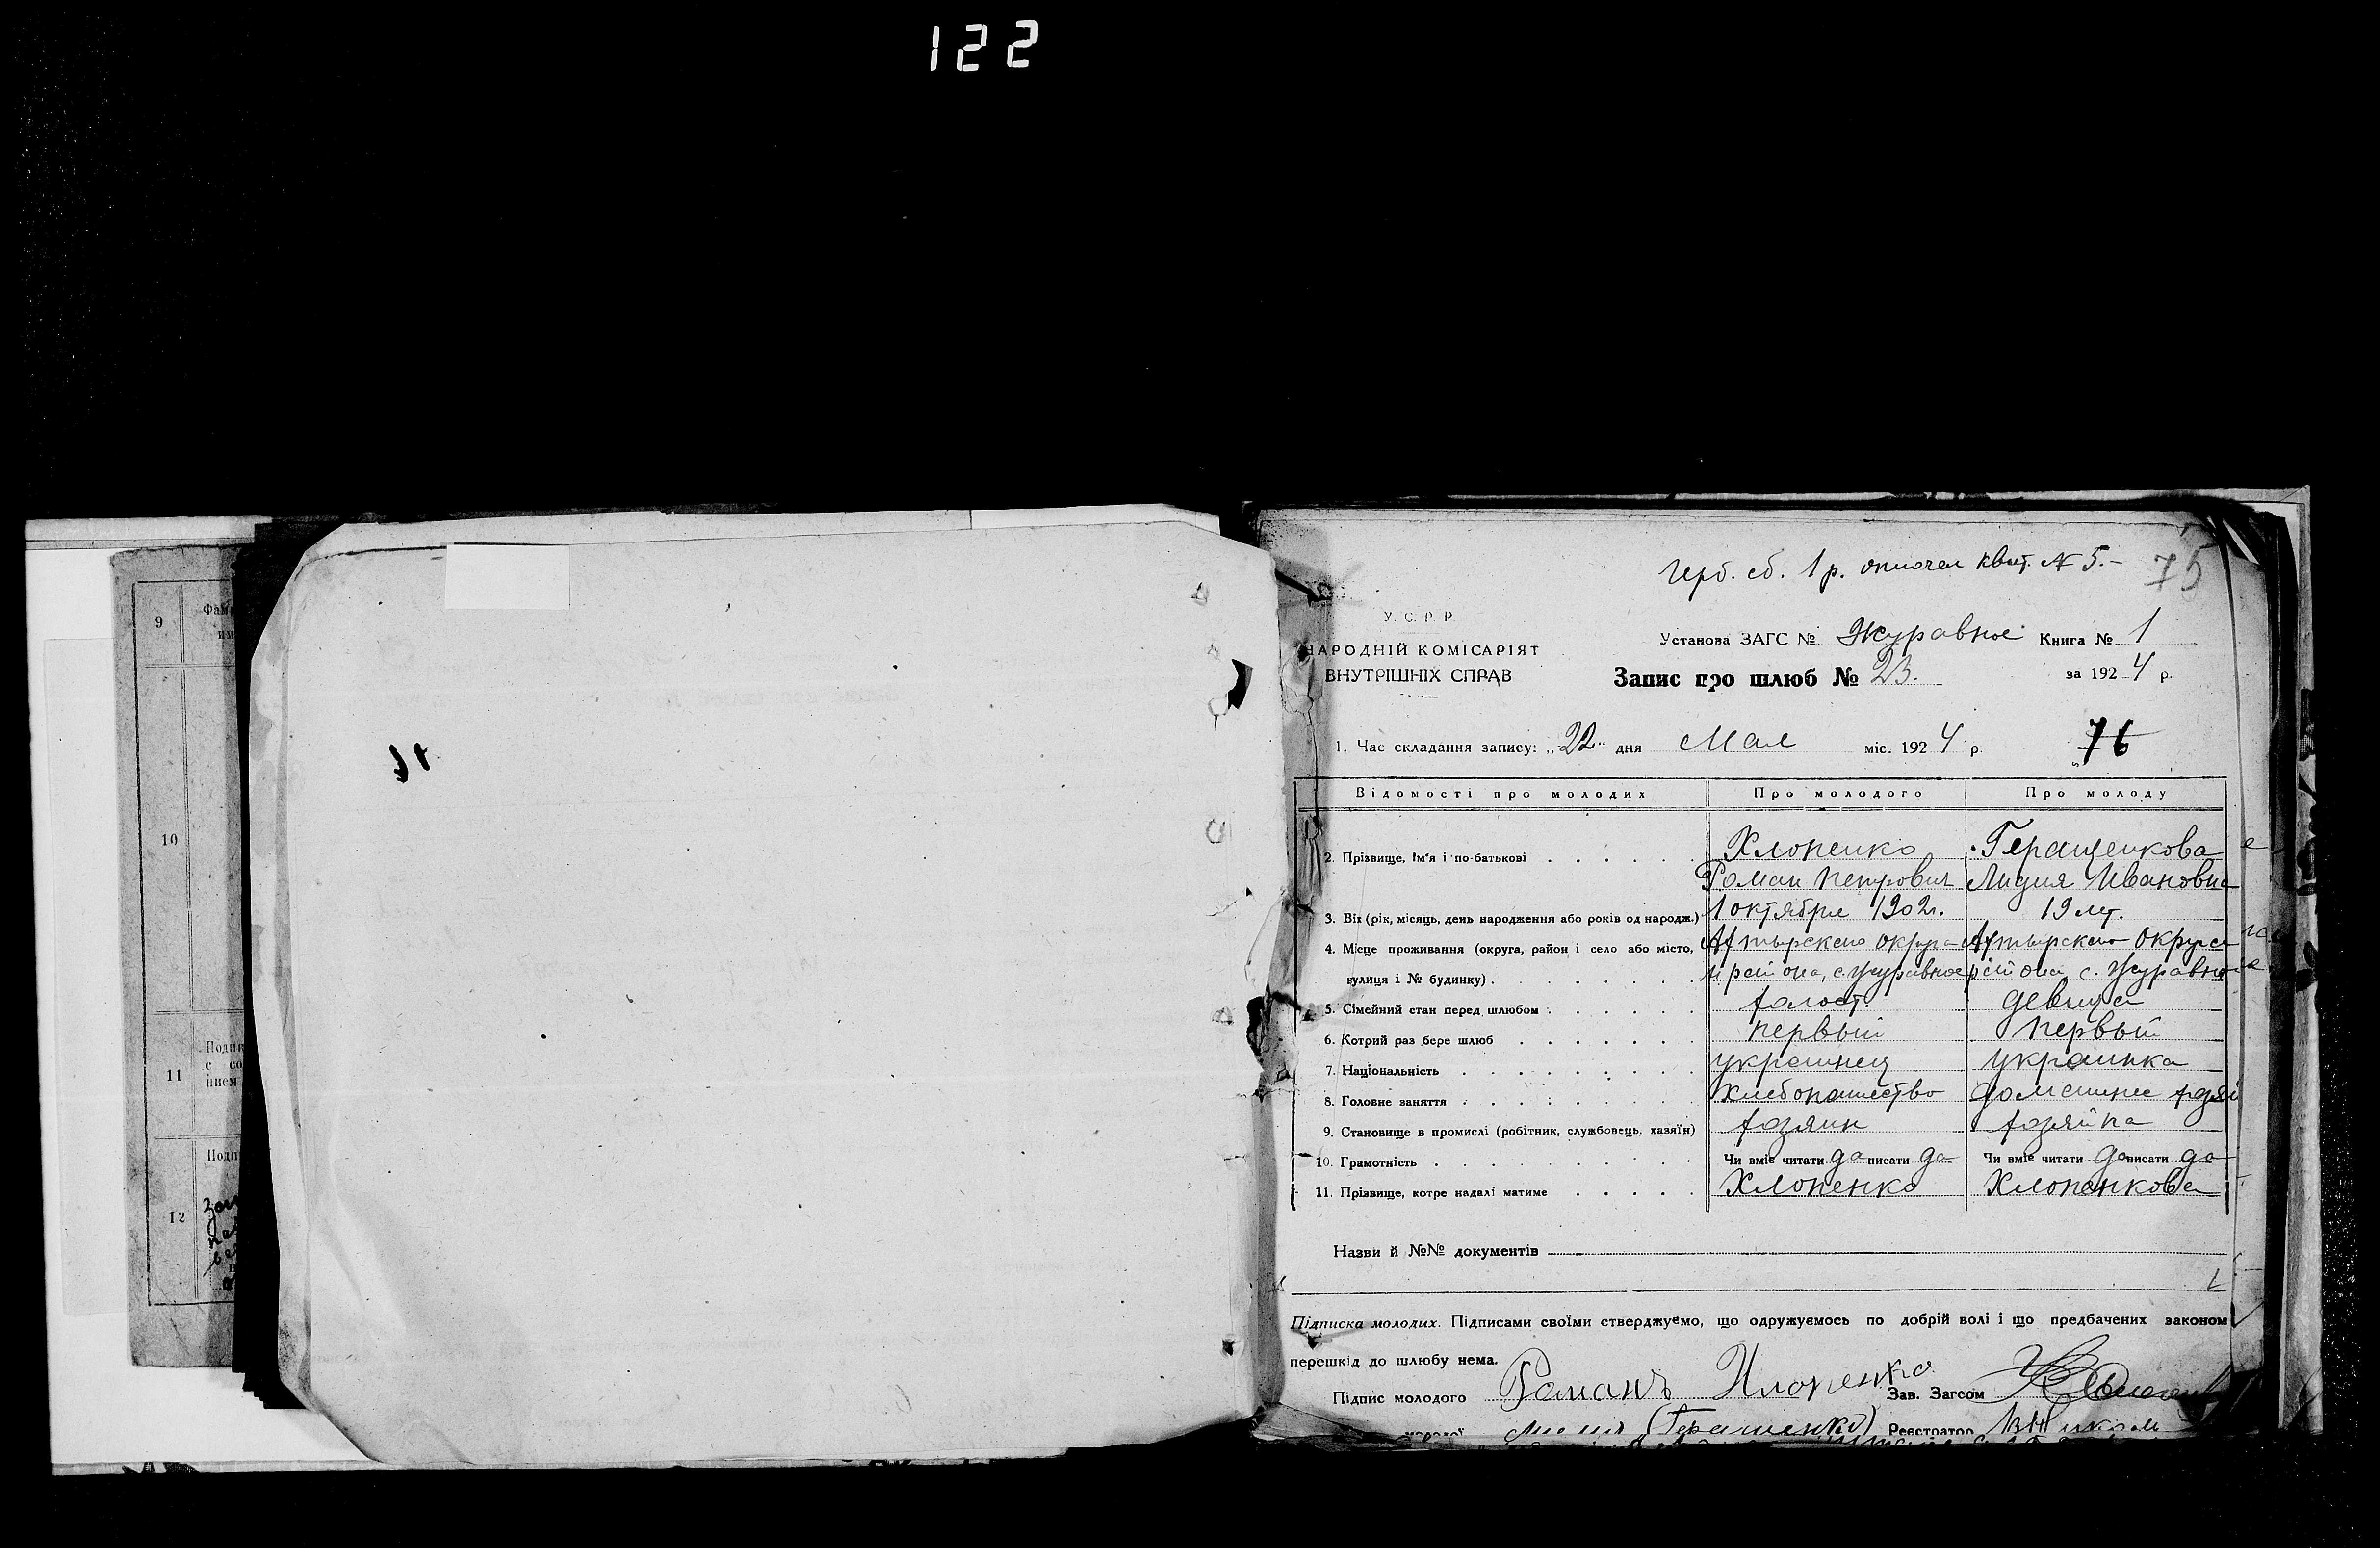 122
9
Фам
им
10
11
Подпи
с со
нием
Подп
12
Герб. сб. 1 р. оплочен квит. № 5.-
75
У. С. Р. Р.
НАРОДНІЙ КОМІСАРІЯТ
ВНУТРІШНІХ СПРАВ
Установа ЗАГС № Журавное Книга № 1
Запис про шлюб № 23. за 1924 р.
1. Час складання запису: „22" дня Мая міс. 1924 р.
76
Відомості про молодих Про молодого Про молоду
2. Прізвище, ім'я і по-батькові Хлопенко Геращенкова
Роман Петрович Лидия Ивановна
3. Вік (рік, місяць, день народження або років од народж.) 1 октября 1902г. 19 лет.
4. Місце проживання (округа, район і село або місто, Ахтырского округа Ахтырского округа
вулиця і № будинку) района, с. Журавное района, с. Журавное
5. Сімейний стан перед шлюбом холост девица
6. Котрий раз бере шлюб первый первый
7. Національність украинец украинка
8. Головне заняття Хлебопашество домашнее хозяй
9. Становище в промислі (робітник, службовець, хазяїн) хозяин хозяйка
10. Грамотність Чи вміє читати да писати да Чи вміє читати да писати да
11. Прізвище, котре надалі матиме Хлопенко Хлопенкова
Назви й №№ документів
Підписка молодих. Підписами своїми стверджуємо, що одружуємось по добрій волі і що предбачених законом
перешкід до шлюбу нема.
Підпис молодого Романъ Хлопенко Зав. Загсом
молодої (Геращенко) Реєстратор